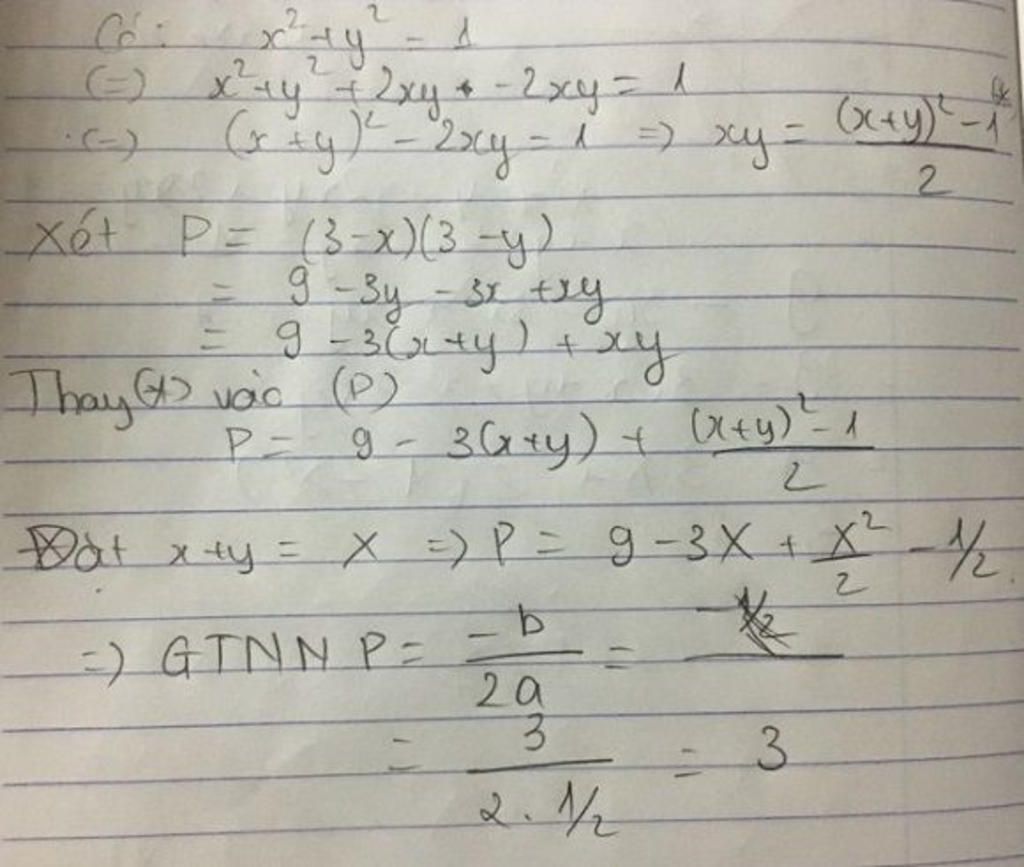 Có: x² + y² = 1
(=) x² + y² + 2xy - 2xy = 1
(=) (x + y)² - 2xy = 1 => xy = \frac{(x+y)² - 1}{2} (*)
Xét P = (3-x)(3-y)
= 9 - 3y - 3x + xy
= 9 - 3(x+y) + xy
Thay (*) vào (P)
P = 9 - 3(x+y) + \frac{(x+y)² - 1}{2}
Đặt x+y = X => P = 9 - 3X + \frac{X²}{2} - 1/2
=> GTNN P = \frac{-b}{2a} =
= \frac{3}{2 . 1/2} = 3